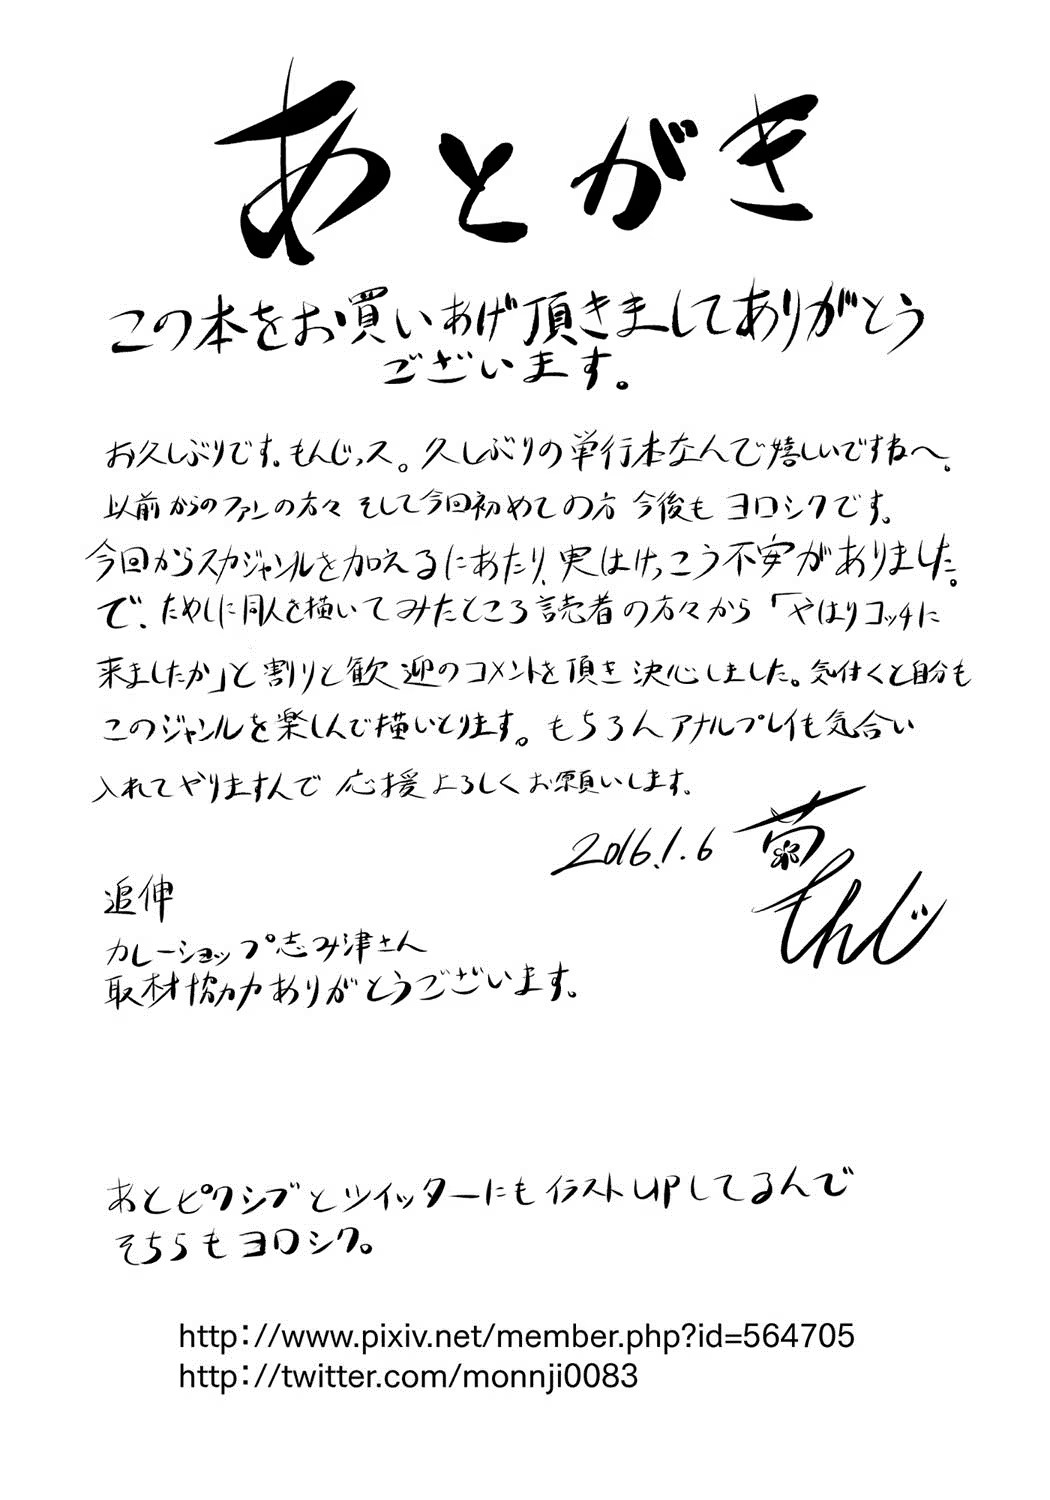 あとがき
この本をお買いあげ頂きましてありがとう
ございます。
お久しぶりです。もんじっス。久しぶりの単行本なんで嬉しいですねへ。
以前からのファンの方々 そして今回初めての方 今後も ヨロシクです。
今回からスカジャンルを加えるにあたり、実はけっこう不安がありました。
で、ためしに同人を描いてみたところ読者の方々から「やはりコッチに
来ましたか」と割りと歓迎のコメントを頂き 決心しました。気付くと自分も
このジャンルを楽しんで描いとります。もちろんアナルプレイも気合い
入れてやりますんで 応援よろしくお願いします。
2016.1.6 菊
もんじ
追伸
カレーショップ志み津さん
取材協力ありがとうございます。
あとピクシブとツイッターにもイラストUPしてるんで
そちらもヨロシク。
http://www.pixiv.net/member.php?id=564705
http://twitter.com/monnji0083